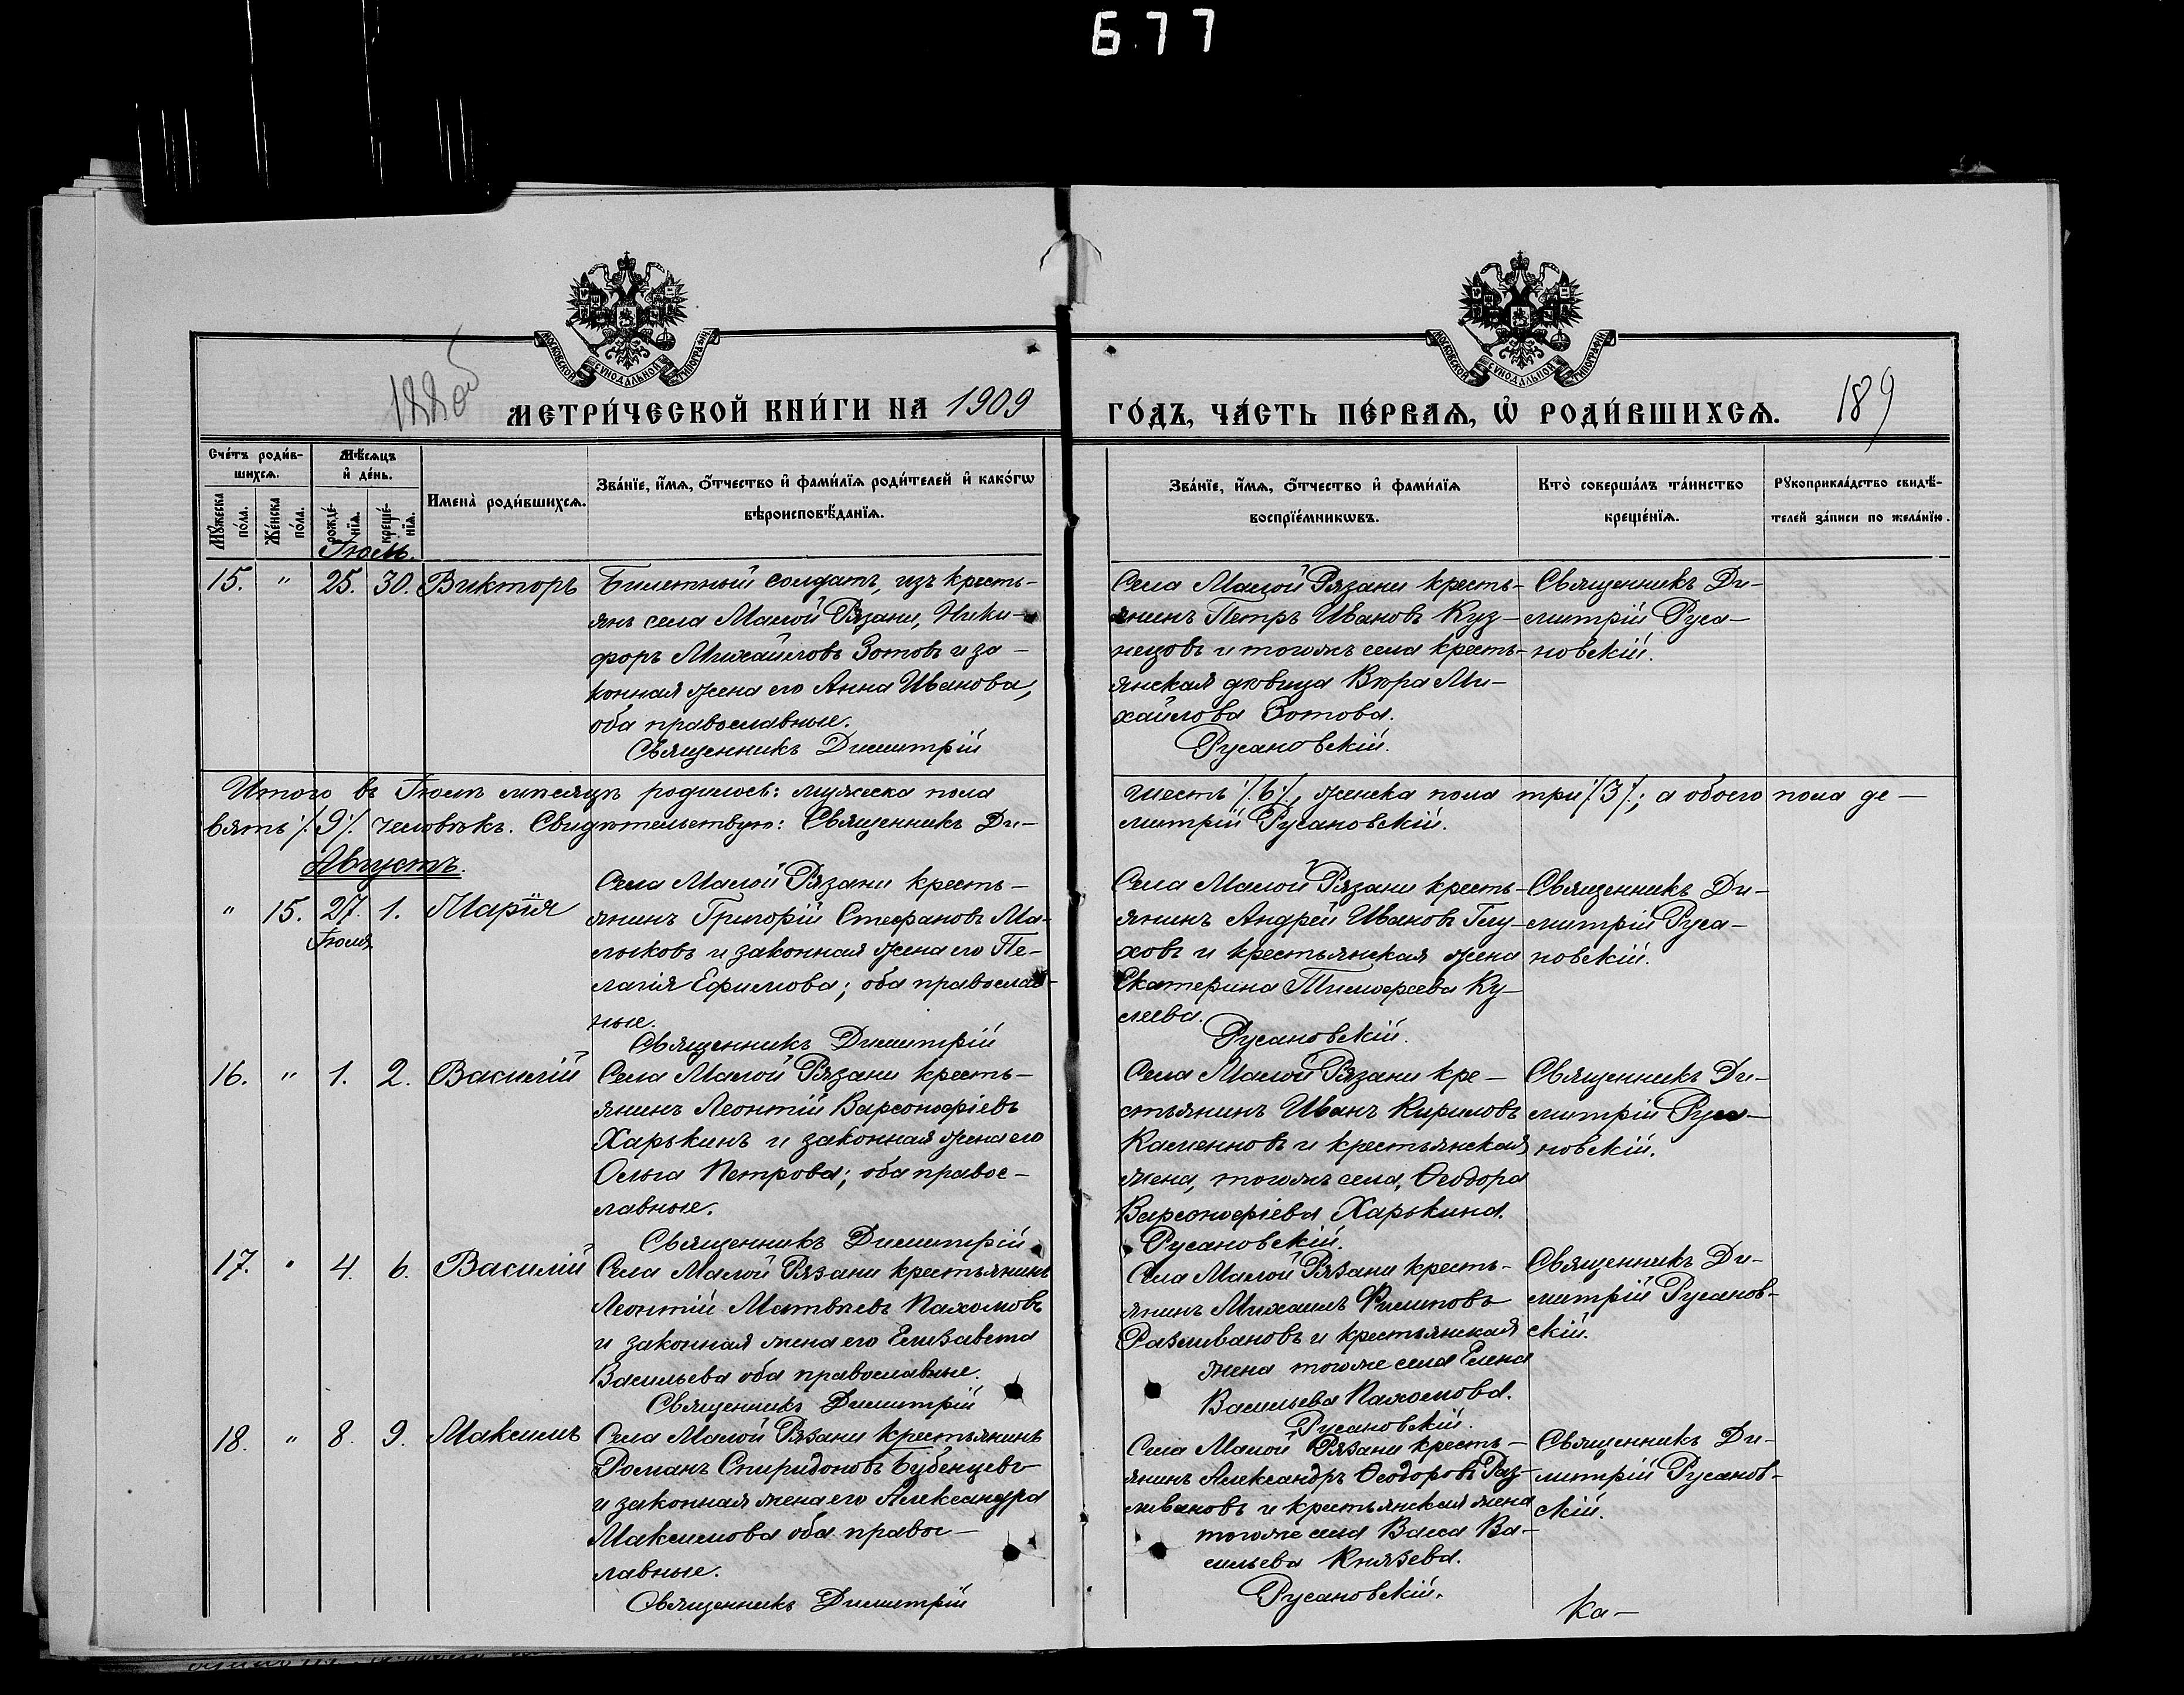 6.77
МОСКОВСКОЙ СУНОДАЛЬНОЙ ТИПОГРАФІИ
МОСКОВСКОЙ СУНОДАЛЬНОЙ ТИПОГРАФІИ
188об
МЕТРИ́ЧЕСКОЙ КНИ́ГИ НА 1909
ГО́ДЪ, ЧА́СТЬ ПЕ́РВАѦ, Ѡ҆ РОДИ́ВШИХСѦ.
189
Сче́тъ роди́в-
шихсѧ.
Мѣ́сѧцъ
и҆ де́нь.
Мꙋ́жеска по́ла.
Же́нска по́ла.
рожде́-нїѧ.
креще́-нїѧ.
Имена̀ роди́вшихсѧ.
Зва́нїе, и҆́мѧ, ѻ҆́тчество и҆ фами́лїѧ роди́телей и҆ како́гѡ
вѣроисповѣ́данїѧ.
Зва́нїе, и҆́мѧ, ѻ҆́тчество и҆ фами́лїѧ
воспрїе́мникѡвъ.
Кто̀ соверша́лъ та́инство
креще́нїѧ.
Рꙋкоприкла́дство свидѣ́-
телей за́писи по жела́нїю.
Іюль.
15. " 25. 30. Викторъ
Билетный солдатъ, изъ кресть-
янъ села Малой Рязани, Ники-
форъ Михайловъ Зотовъ и за-
конная жена его Анна Иванова,
оба православные.
Священникъ Димитрій
Села Малой Рязани кресть-
янинъ Петръ Ивановъ Куз-
нецовъ и тогожъ села кресть-
янская дѣвица Вѣра Ми-
хайлова Зотова.
Русановскій.
Священникъ Ди-
митрій Руса-
новскій.
Итого въ Іюлѣ мѣсяцѣ родилось: мужеска пола
шесть /.6./, женска пола три /.3./; а обоего пола де-
вять /.9./. человѣкъ. Свидѣтельствую: Священникъ Ди-
митрій Русановскій.
Августъ.
" 15. 27. 1. Марія
Іюля
Села Малой Рязани кресть-
янинъ Григорій Стефановъ Ма-
лыковъ и законная жена его Пе-
лагія Ефимова; оба православ-
ные.
Священникъ Димитрій
Села Малой Рязани кресть-
янинъ Андрей Ивановъ Глу-
ховъ и крестьянская жена
Екатерина Тимофеева Ку-
леева.
Русановскій.
Священникъ Ди-
митрій Руса-
новскій.
16. " 1. 2. Василій
Села Малой Рязани кресть-
янинъ Леонтій Варсонофіевъ
Харькинъ и законная жена его
Ольга Петрова; оба правос-
лавные.
Священникъ Димитрій
Села Малой Рязани кре-
стьянинъ Иванъ Кириловъ
Каменновъ и крестьянская
жена, тогожъ села, Ѳеодора
Варсонофіева Харькина.
Русановскій.
Священникъ Ди-
митрій Руса-
новскій.
17. " 4. 6. Василій
Села Малой Рязани крестьянинъ
Леонтій Матвѣевъ Пахомовъ
и законная жена его Елизавета
Васильева оба православные.
Священникъ Димитрій
Села Малой Рязани кресть-
янинъ Михаилъ Филиповъ
Разливановъ и крестьянская
жена тогоже села Елена
Васильева Пахомова.
Русановскій.
Священникъ Ди-
митрій Русанов-
скій.
18. " 8. 9. Максимъ
Села Малой Рязани крестьянинъ
Романъ Спиридоновъ Бубенцевъ
и законная жена его Александра
Максимова оба правос-
лавные.
Священникъ Димитрій
Села Малой Рязани кресть-
янинъ Александръ Ѳеодоровъ Раз-
ливановъ и крестьянская жена
тогоже села Васса Ва-
сильева Князева.
Русановскій.
Священникъ Ди-
митрій Русанов-
скій.
ка-